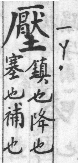 壓
一ㄚ·
鎮也降也
塞也補也